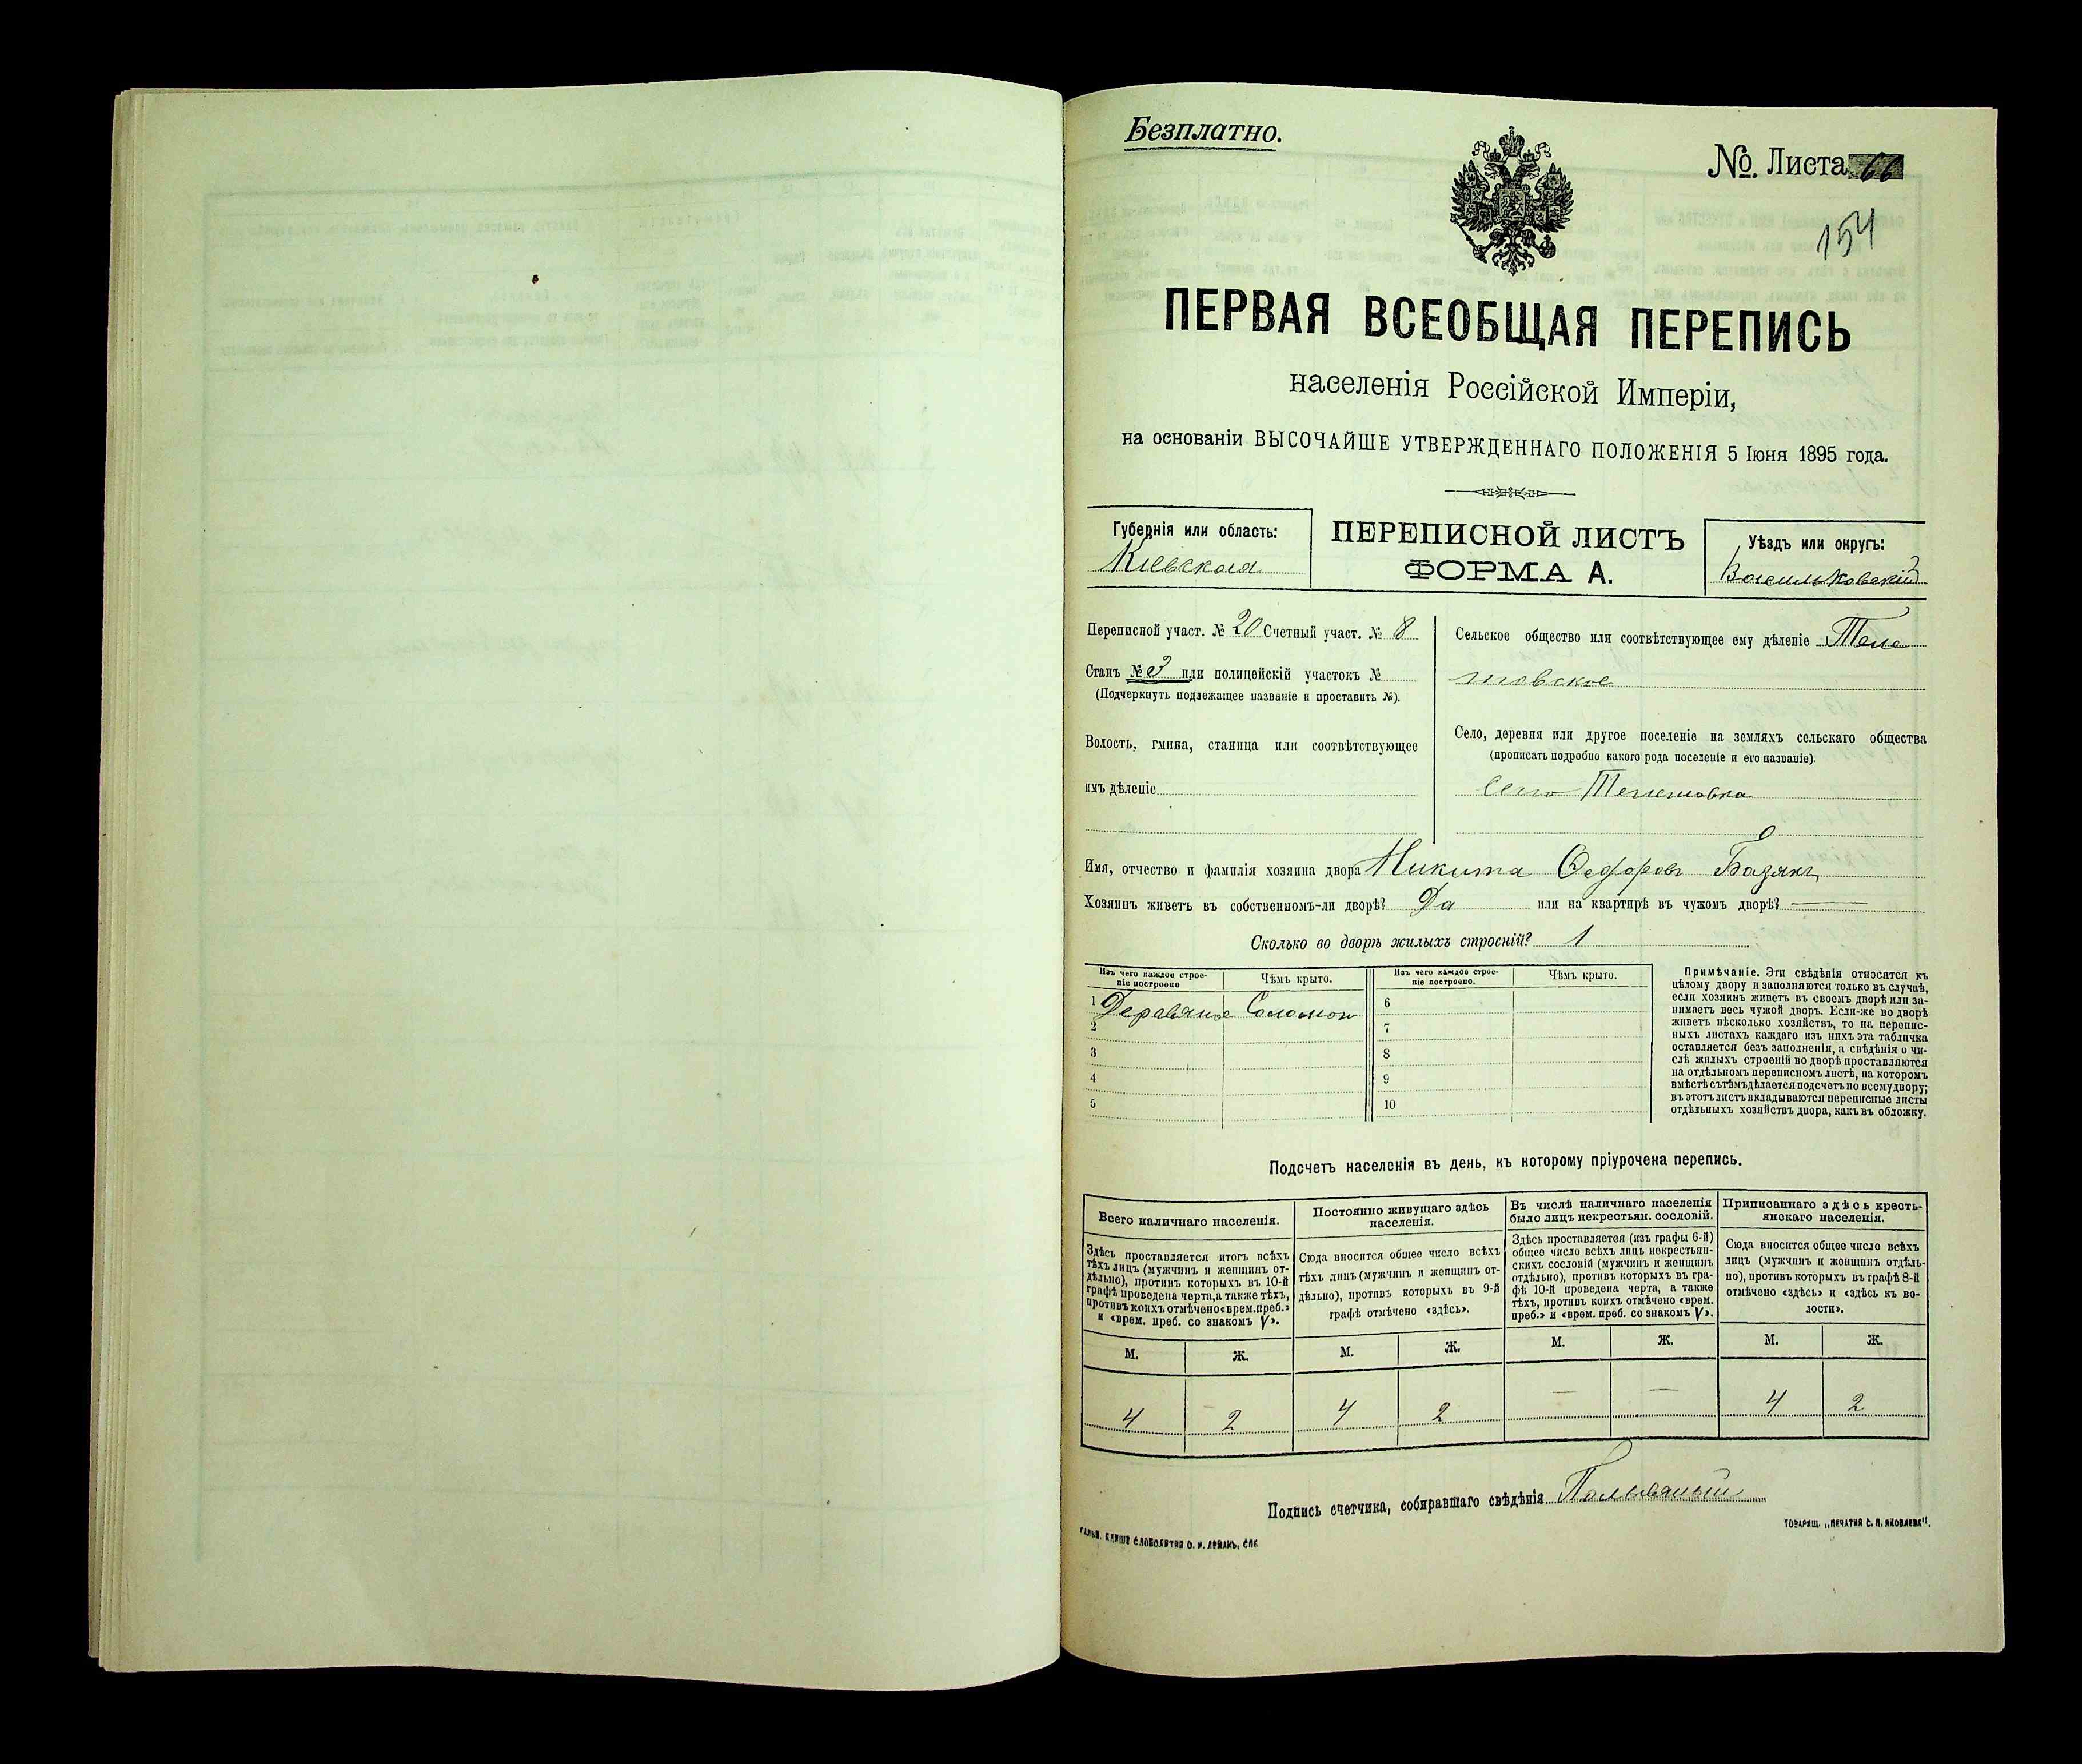 Безплатно.
№. Листа 66
154
ПЕРВАЯ ВСЕОБЩАЯ ПЕРЕПИСЬ
населенія Россійской Имперіи,
на основаніи ВЫСОЧАЙШЕ УТВЕРЖДЕННАГО ПОЛОЖЕНІЯ 5 Іюня 1895 года.
Губернія или область:
Кіевская
ПЕРЕПИСНОЙ ЛИСТЪ
ФОРМА А.
Уѣздъ или округъ:
Васильковскій
Переписной участ. № 20 Счетный участ. № 8
Станъ № 3 или полицейскій участокъ №
(Подчеркнуть подлежащее названіе и проставить №).
Волость, гмина, станица или соотвѣтствующее
имъ дѣленіе
Сельское общество или соотвѣтствующее ему дѣленіе Теле
шовское
Село, деревня или другое поселеніе на земляхъ сельскаго общества
(прописать подробно какого рода поселеніе и его названіе).
Село Телешовка
Имя, отчество и фамилія хозяина двора Никита Ѳедоровъ Базякъ
Хозяинъ живетъ въ собственномъ-ли дворѣ? Да или на квартирѣ въ чужомъ дворѣ? —
Сколько во дворѣ жилыхъ строеній? 1
Изъ чего каждое строе-
ніе построено
Чѣмъ крыто.
Изъ чего каждое строе-
ніе построено.
Чѣмъ крыто.
1 Деревяное Соломой
2
3
4
5
6
7
8
9
10
Примѣчаніе. Эти свѣдѣнія относятся къ
цѣлому двору и заполняются только въ случаѣ,
если хозяинъ живетъ въ своемъ дворѣ или за-
нимаетъ весь чужой дворъ. Если-же во дворѣ
живетъ нѣсколько хозяйствъ, то на перепис-
ныхъ листахъ каждаго изъ нихъ эта табличка
оставляется безъ заполненія, а свѣдѣнія о чи-
слѣ жилыхъ строеній во дворѣ проставляются
на отдѣльномъ переписномъ листѣ, на которомъ
вмѣстѣ съ тѣмъ дѣлается подсчетъ по всему двору;
въ этотъ листъ вкладываются переписные листы
отдѣльныхъ хозяйствъ двора, какъ въ обложку.
Подсчетъ населенія въ день, къ которому пріурочена перепись.
Всего наличнаго населенія.
Здѣсь проставляется итогъ всѣхъ
тѣхъ лицъ (мужчинъ и женщинъ от-
дѣльно), противъ которыхъ въ 10-й
графѣ проведена черта, а также тѣхъ,
противъ коихъ отмѣчено «врем. преб.»
и «врем. преб. со знакомъ V».
Постоянно живущаго здѣсь
населенія.
Сюда вносится общее число всѣхъ
тѣхъ лицъ (мужчинъ и женщинъ от-
дѣльно), противъ которыхъ въ 9-й
графѣ отмѣчено «здѣсь».
Въ числѣ наличнаго населенія
было лицъ некрестьян. сословій.
Здѣсь проставляется (изъ графы 6-й)
общее число всѣхъ лицъ некрестьян-
скихъ сословій (мужчинъ и женщинъ
отдѣльно), противъ которыхъ въ гра-
фѣ 10-й проведена черта, а также
тѣхъ, противъ коихъ отмѣчено «врем.
преб.» и «врем. преб. со знакомъ V».
Приписаннаго здѣсь кресть-
янскаго населенія.
Сюда вносится общее число всѣхъ
лицъ (мужчинъ и женщинъ отдѣль-
но), противъ которыхъ въ графѣ 8-й
отмѣчено «здѣсь» и «здѣсь къ во-
лости».
М. Ж. М. Ж. М. Ж. М. Ж.
4 2 4 2 — — 4 2
Подпись счетчика, собиравшаго свѣдѣнія
ТОВАРИЩ. „ПЕЧАТНЯ С. П. ЯКОВЛЕВА".